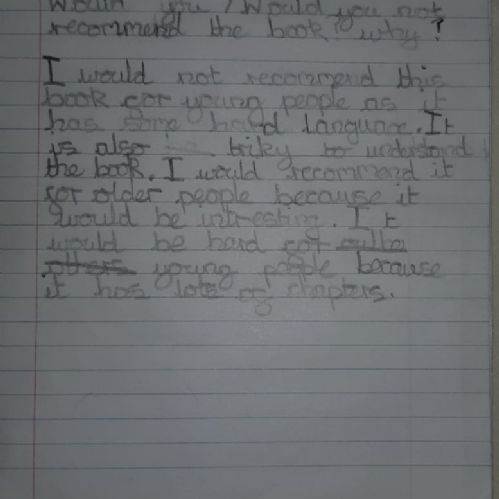 Would you / Would you not
recommend the book? why?
I would not recommend this
book for young people as it
has some hard language. It
is also triky to understand
the book. I would recommend it
for older people because it
would be intresting. It
would be hard for
others young people because
it has lots of chapters.